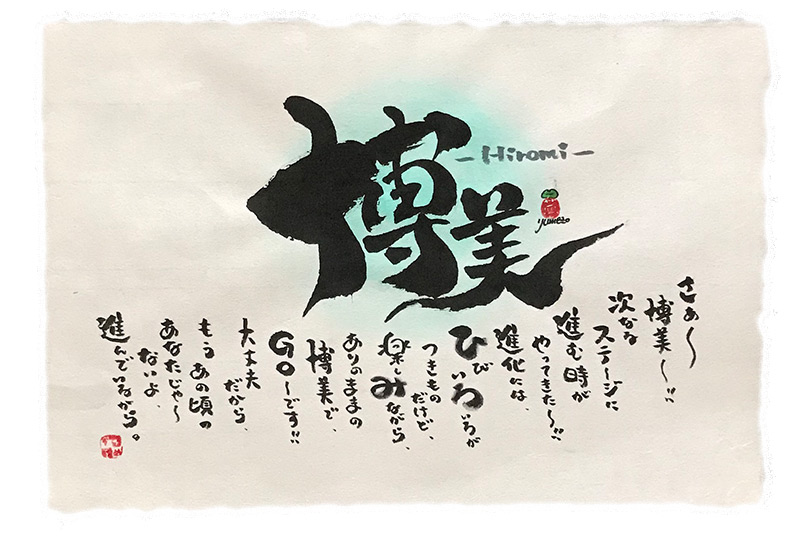 博美
-Hiromi-
yumezo
さぁ〜
博美〜!!
次なる
ステージに
進む時が
やってきた〜!!
進化には、
ひびいろいろが
つきもの
だけど、
楽しみながら、
ありのままの
博美で、
GO〜です!!
大丈夫
だから、
もうあの頃の
あなたじゃ〜
ないよ、
進んでいるから。